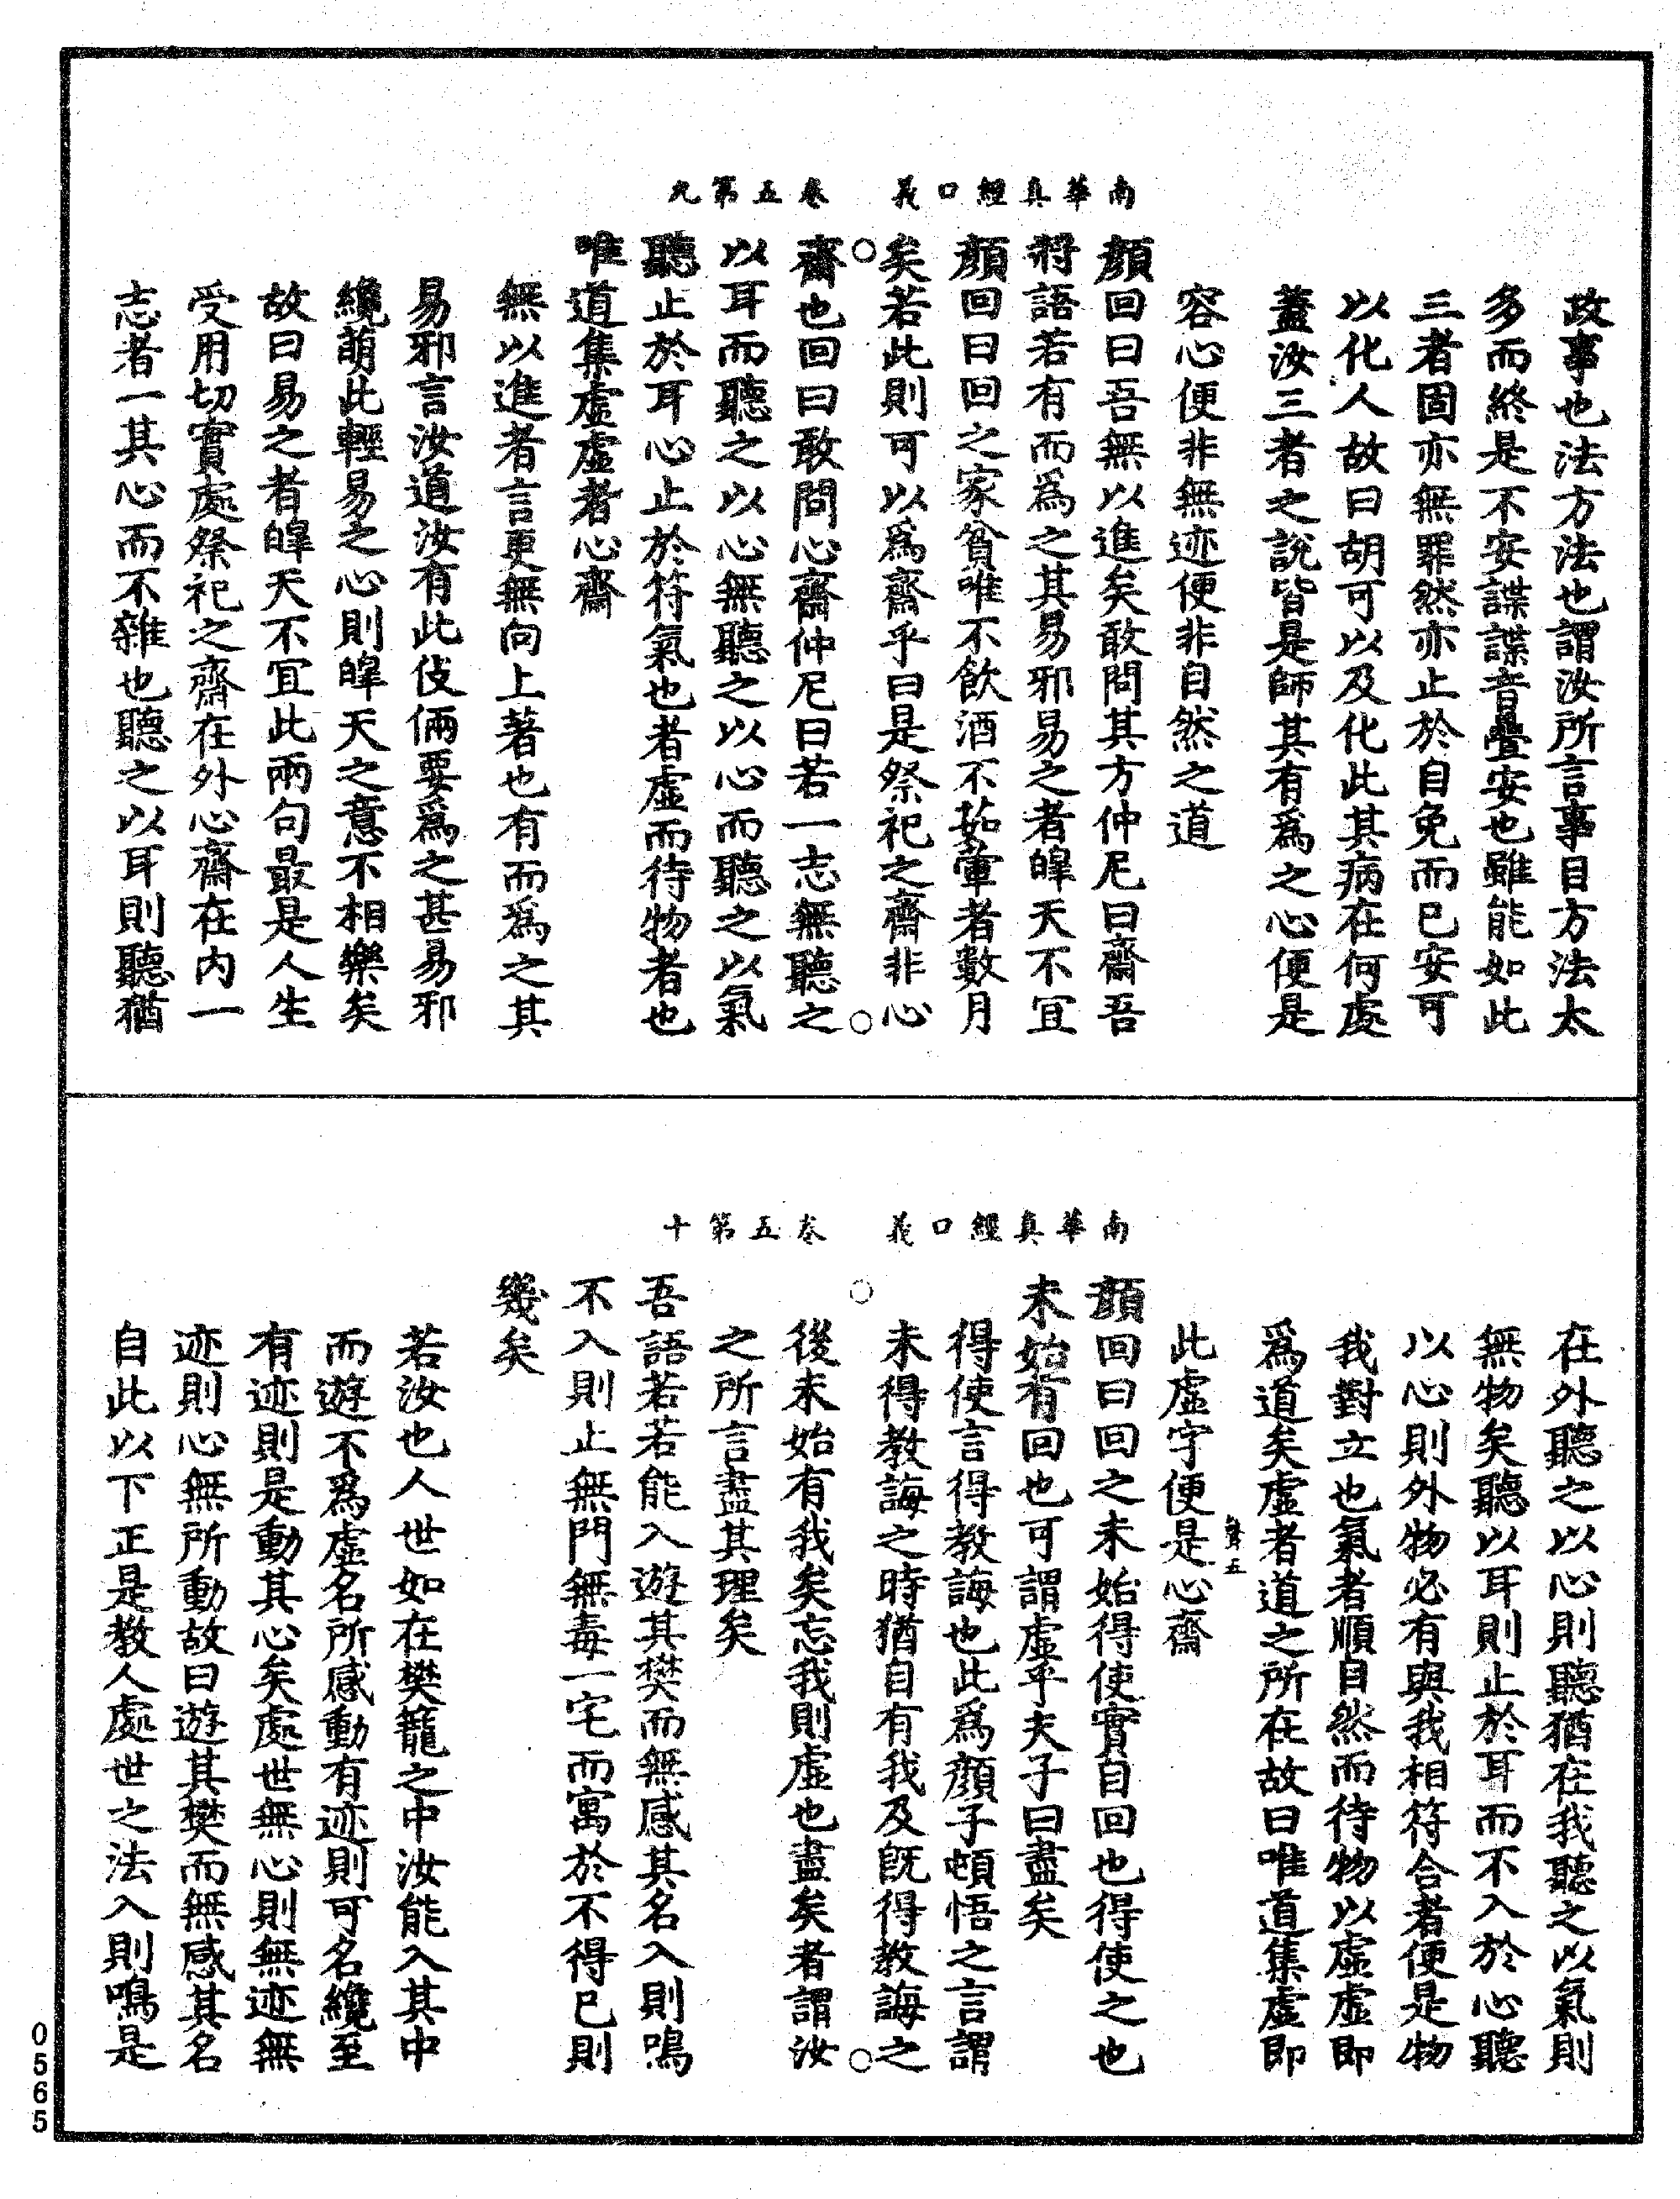 南華真經口義　卷五第九
政事也法方法也謂汝所言事目方法太
多而終是不安諜諜音疊安也雖能如此
三者固亦無罪然亦止於自免而已安可
以化人故曰胡可以及化此其病在何處
蓋汝三者之說皆是師其有為之心便是
容心便非無迹便非自然之道
顏回曰吾無以進矣敢問其方仲尼曰齋吾
將語若有而為之其易邪易之者皞天不宜
顏回曰回之家貧唯不飲酒不茹葷者數月
矣若此則可以為齋乎曰是祭祀之齋非心
齋也回曰敢問心齋仲尼曰若一志無聽之
以耳而聽之以心無聽之以心而聽之以氣
聽止於耳心止於符氣也者虛而待物者也
唯道集虛虛者心齋
無以進者言更無向上著也有而為之其
易邪言汝道汝有此伎倆要為之甚易邪
纔萌此輕易之心則皞天之意不相樂矣
故曰易之者皞天不宜此兩句最是人生
受用切實處祭祀之齋在外心齋在內一
志者一其心而不雜也聽之以耳則聽猶
南華真經口義　卷五第十
在外聽之以心則聽猶在我聽之以氣則
無物矣聽以耳則止於耳而不入於心聽
以心則外物必有與我相符合者便是物
我對立也氣者順自然而待物以虛虛即
為道矣虛者道之所在故曰唯道集虛即
此虛字便是心齋
顏回曰回之未始得使實自回也得使之也
未始有回也可謂虛乎夫子曰盡矣
得使言得教誨也此為顏子頓悟之言謂
未得教誨之時猶自有我及既得教誨之
後未始有我矣忘我則虛也盡矣者謂汝
之所言盡其理矣
吾語若若能入遊其樊而無感其名入則鳴
不入則止無門無毒一宅而寓於不得已則
幾矣
若汝也人世如在樊籠之中汝能入其中
而遊不為虛名所感動有迹則可名纔至
有迹則是動其心矣處世無心則無迹無
迹則心無所動故曰遊其樊而無感其名
自此以下正是教人處世之法入則鳴是
0565